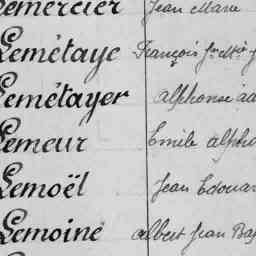 Lemercier Jean Marie
Lemétaye François Jn Mie
Lemétayer alphonse
Lemeur Emile alpho
Lemoël Jean Edouar
Lemoine albert Jean Bap